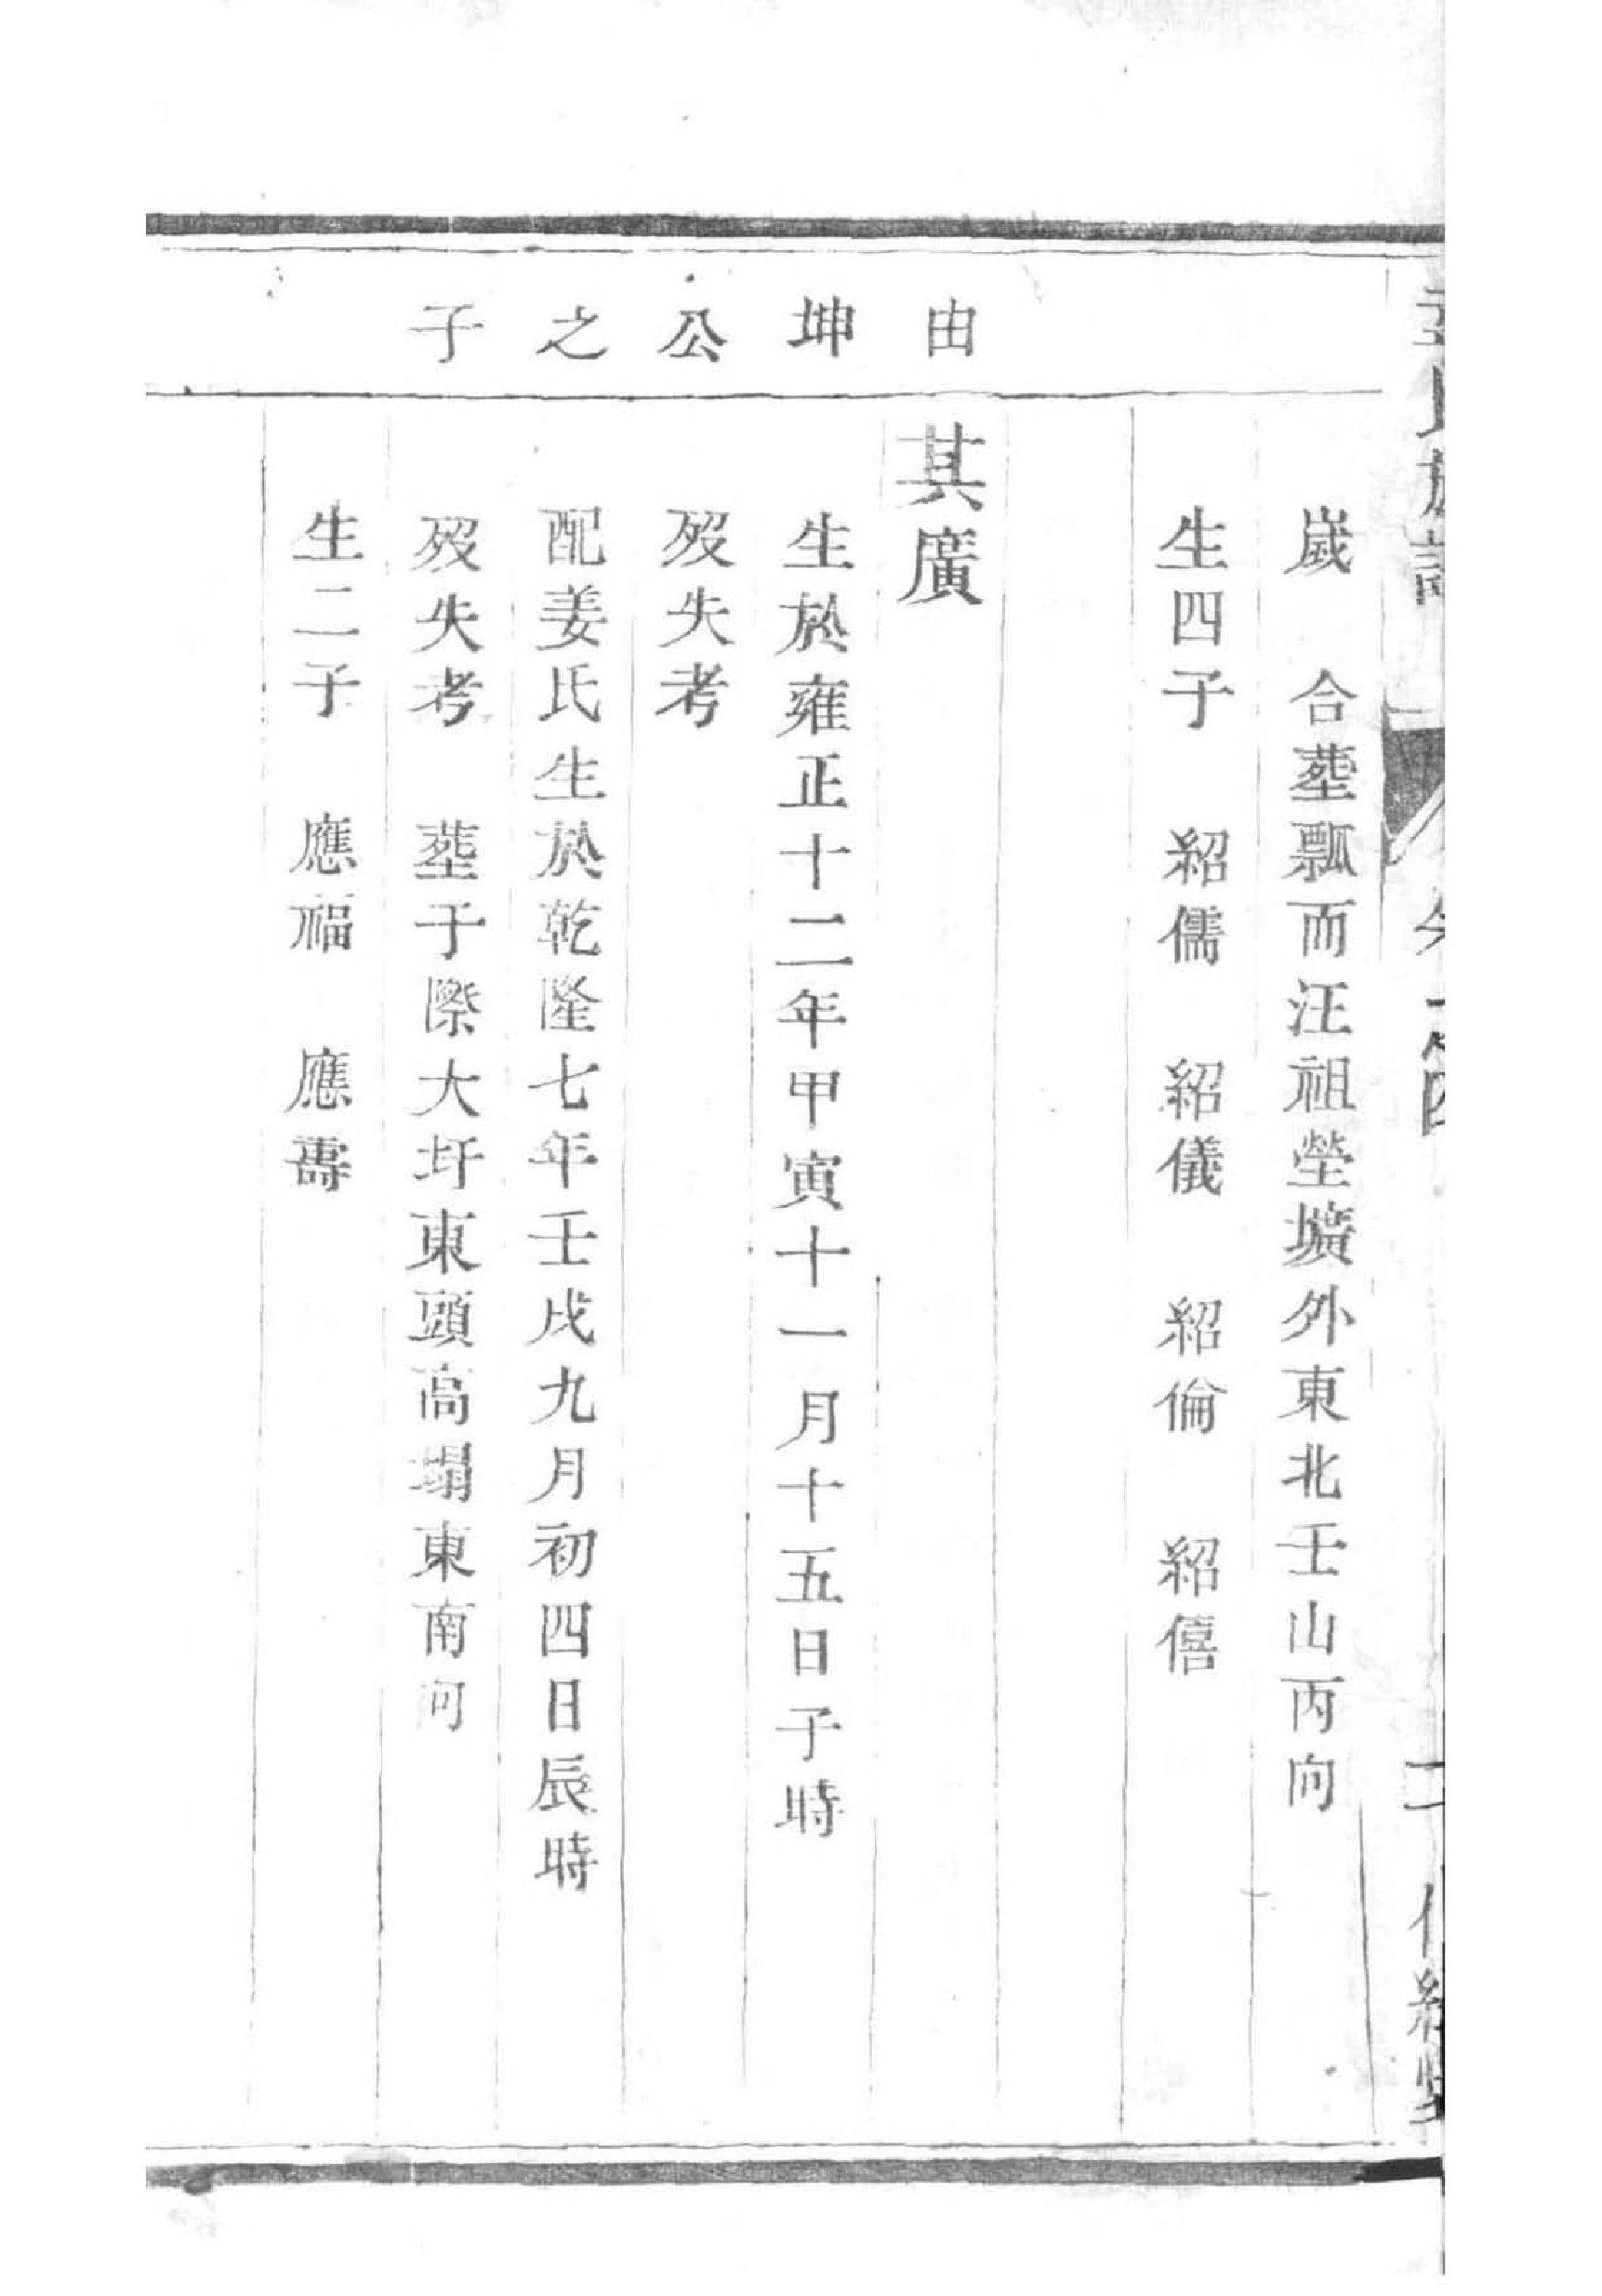 歲　合塟瓢而汪祖塋壙外東北壬山丙向
生四子　紹儒　紹儀　紹倫　紹僖
由坤公之子
其廣
生於雍正十二年甲寅十一月十五日子時
歿失考
配姜氏生於乾隆七年壬戌九月初四日辰時
歿失考　塟于際大圩東頭高塌東南向
生二子　應福　應壽